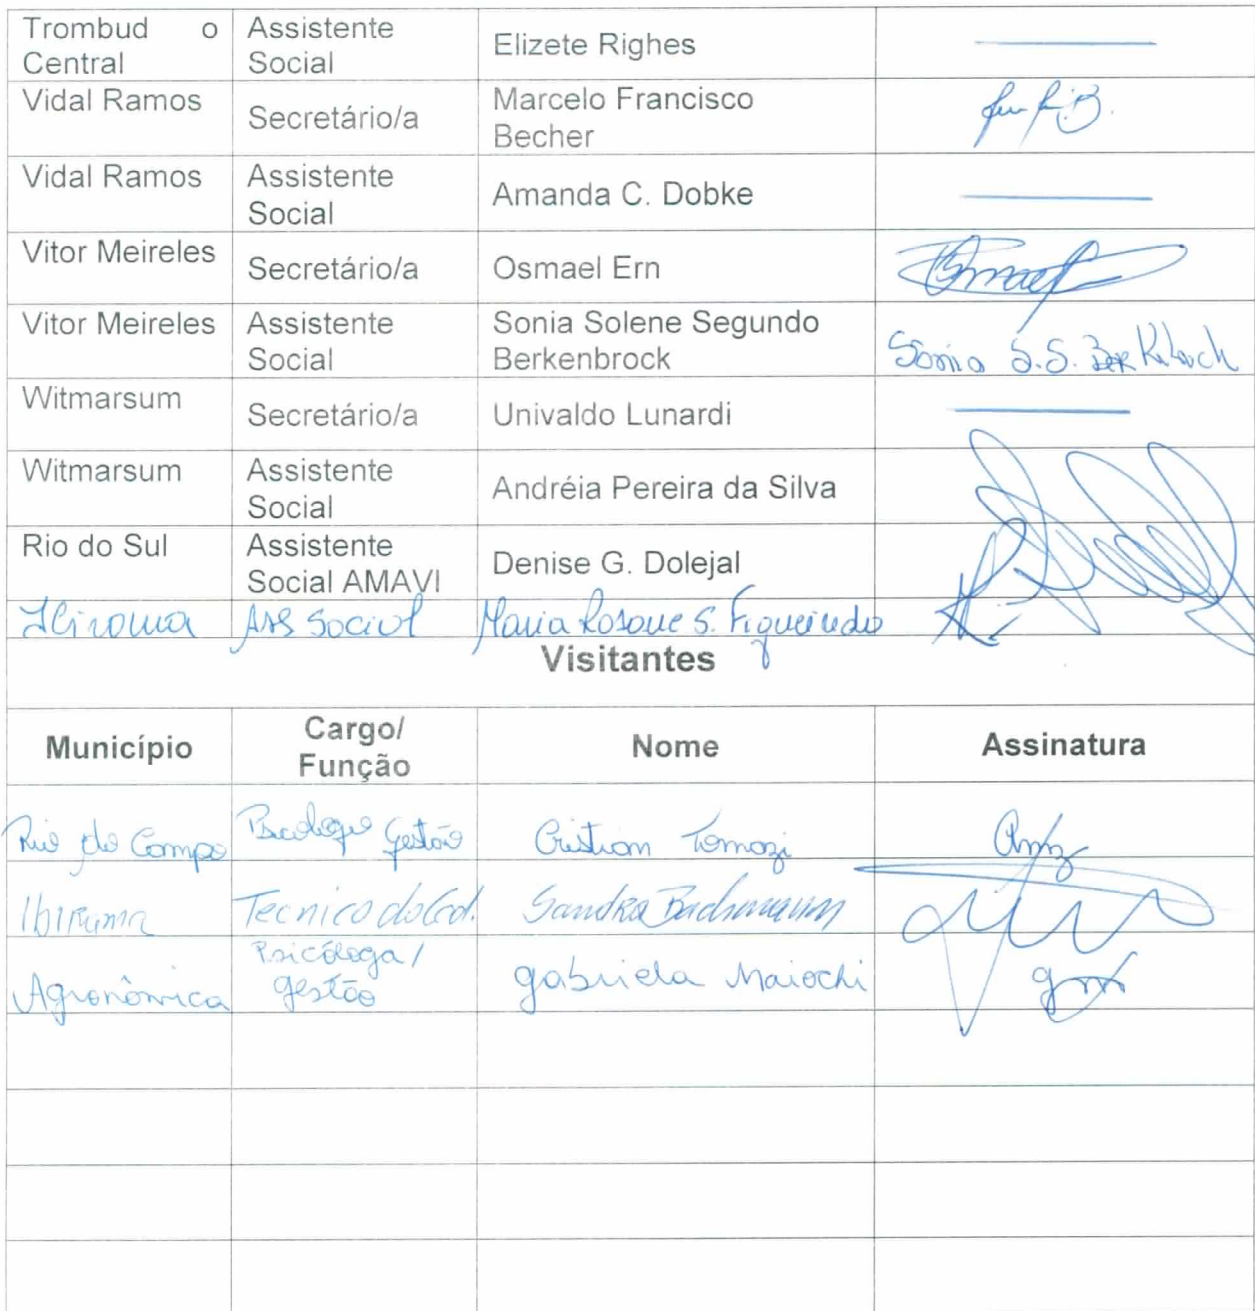 Trombud o Assistente
Central Social Elizete Righes
Vidal Ramos Secretário/a Marcelo Francisco
Becher
Vidal Ramos Assistente
Social Amanda C. Dobke
Vitor Meireles Secretário/a Osmael Ern
Vitor Meireles Assistente Sonia Solene Segundo
Social Berkenbrock Sonia S.S. Berkenbrock
Witmarsum Secretário/a Univaldo Lunardi
Witmarsum Assistente
Social Andréia Pereira da Silva
Rio do Sul Assistente
Social AMAVI Denise G. Dolejal
Ass Social Maria Rosane S. Figueiredo
Visitantes
Município Cargo/
Função Nome Assinatura
Rio do Campo Psicólogo Gestão Cristian Tomazi
Ibirama Tecnico do Cad. Sandra Bachmann
Agronômica Psicóloga/
gestão gabriela Maiochi